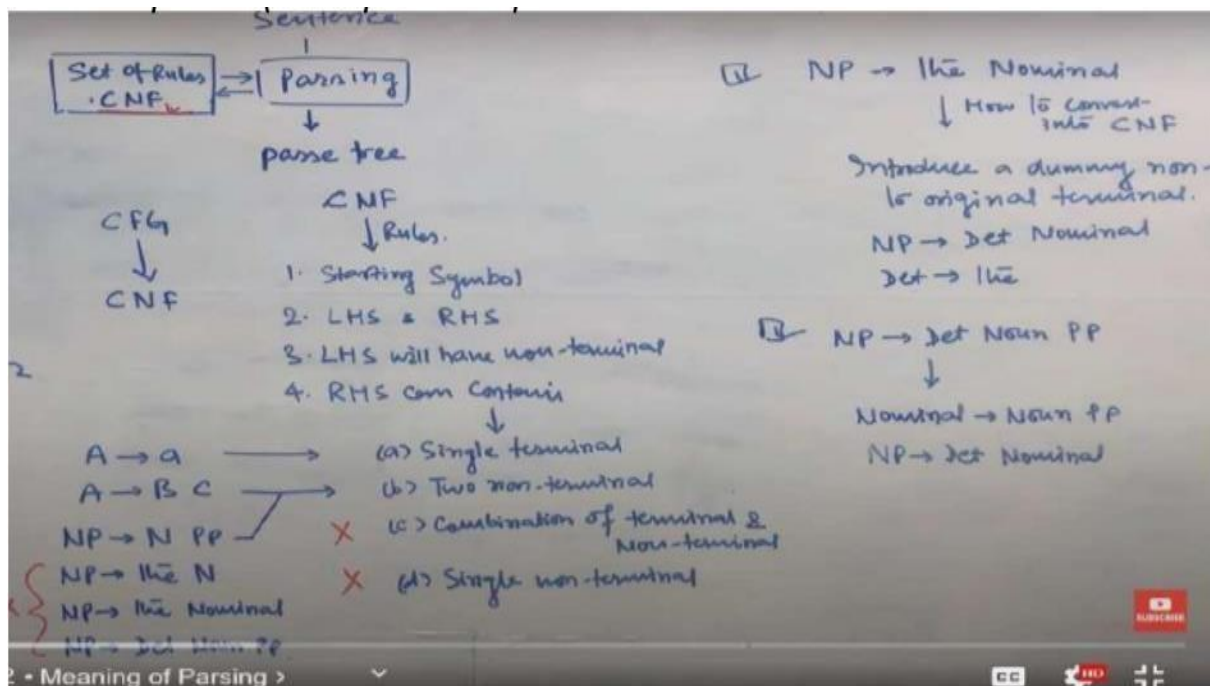 Sentence
Set of Rules
. CNF
Parsing
passe tree
CFG
CNF
CNF
Rules.
1. Starting Symbol
2. LHS & RHS
3. LHS will have non-terminal
4. RHS can Contain
2
A → a → (a) Single terminal
A → B C → (b) Two non-terminal
NP → N PP
X (c) Combination of terminal &
Non-terminal
NP → The N
X (d) Single non-terminal
NP → The Nominal
NP → Det Noun PP
NP → The Nominal
How to convert
into CNF
Introduce a dummy non-
to original terminal.
NP → Det Nominal
Det → The
NP → Det Noun PP
Nominal → Noun PP
NP → Det Nominal
SUBSCRIBE
2 • Meaning of Parsing >
CC
HD